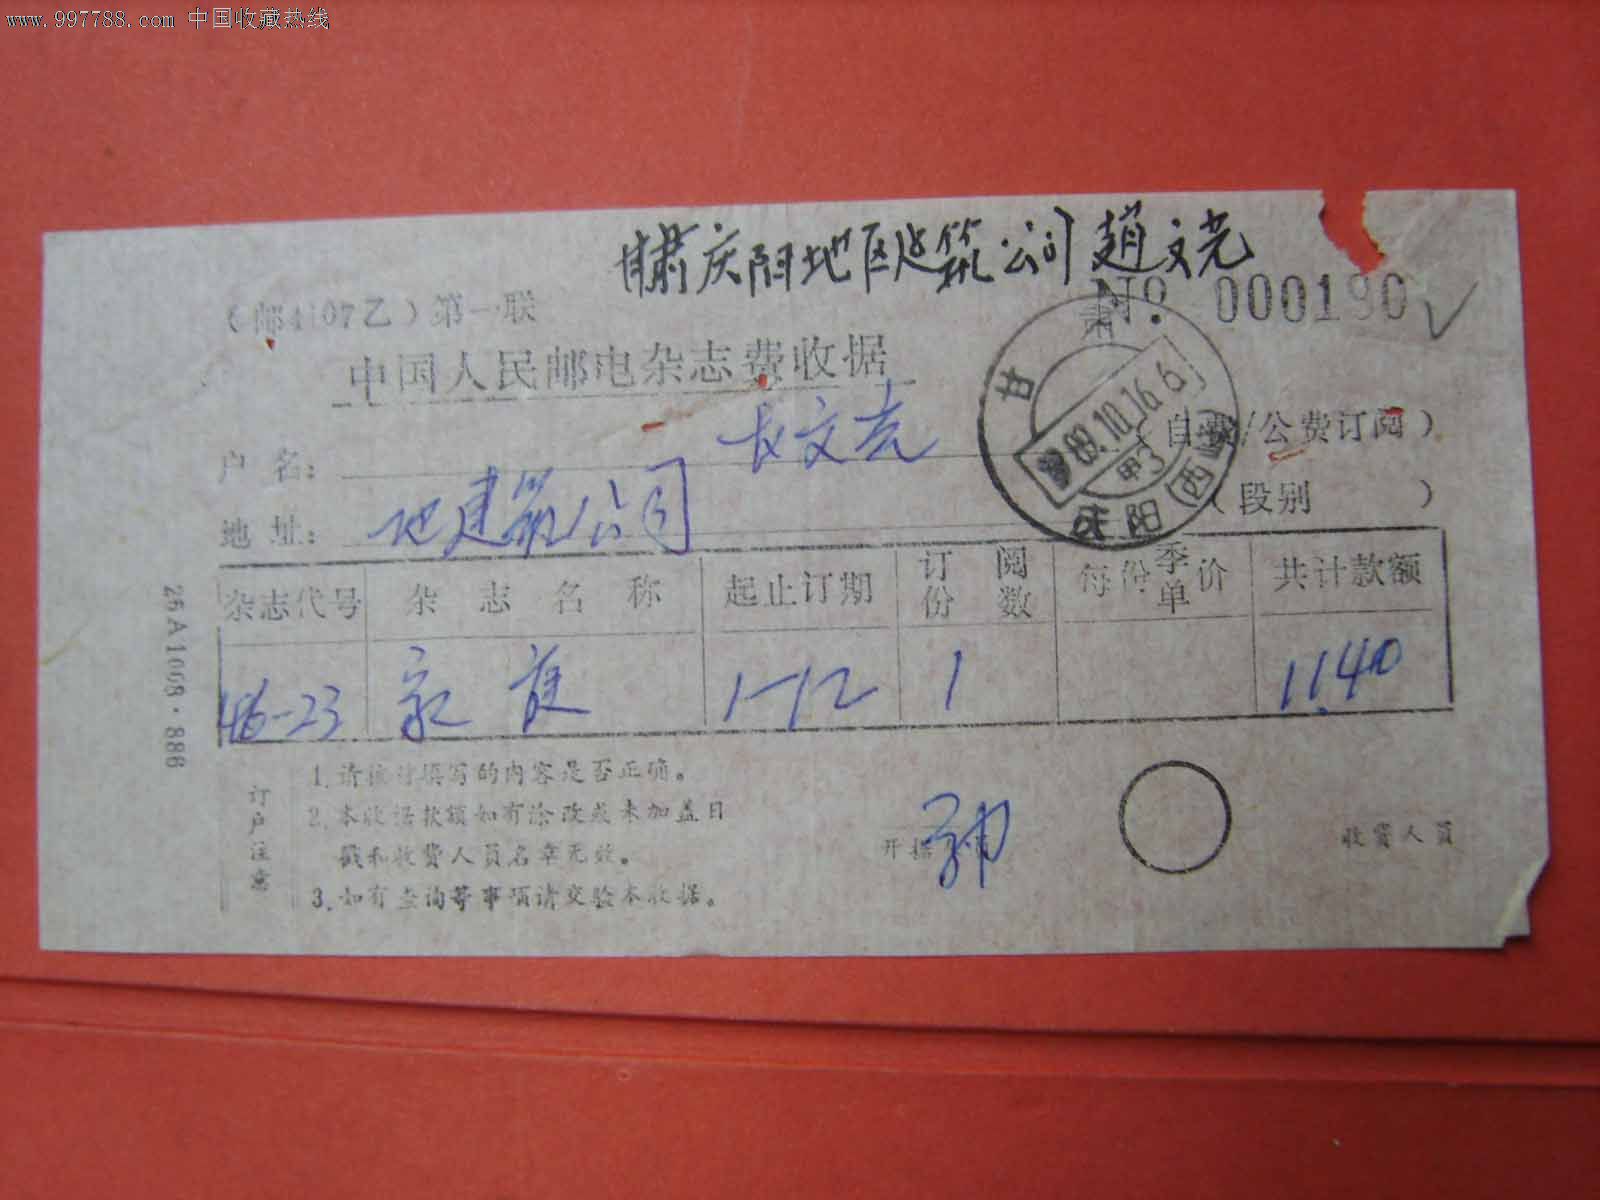 www.997788.com 中国收藏热线
甘肃庆阳地区建筑公司 趙文光
(邮4107乙)第一联
No. 000190
中国人民邮电杂志费收据
甘肃
89.10.16.6
甲3
庆阳(西峰)
户名: 文光
(自费/公费订阅)
地址: 地建筑公司
(段别 )
杂志代号 杂志名称 起止订期 订阅份数 每份季单价 共计款额
46-23 1-12 1 11.40
26A1008·886
订户注意
1.请核对填写的内容是否正确。
2.本收据款额如有涂改或未加盖日
戳和收费人员名章无效。
3.如有查询等事项请交验本收据。
开据
收费人员